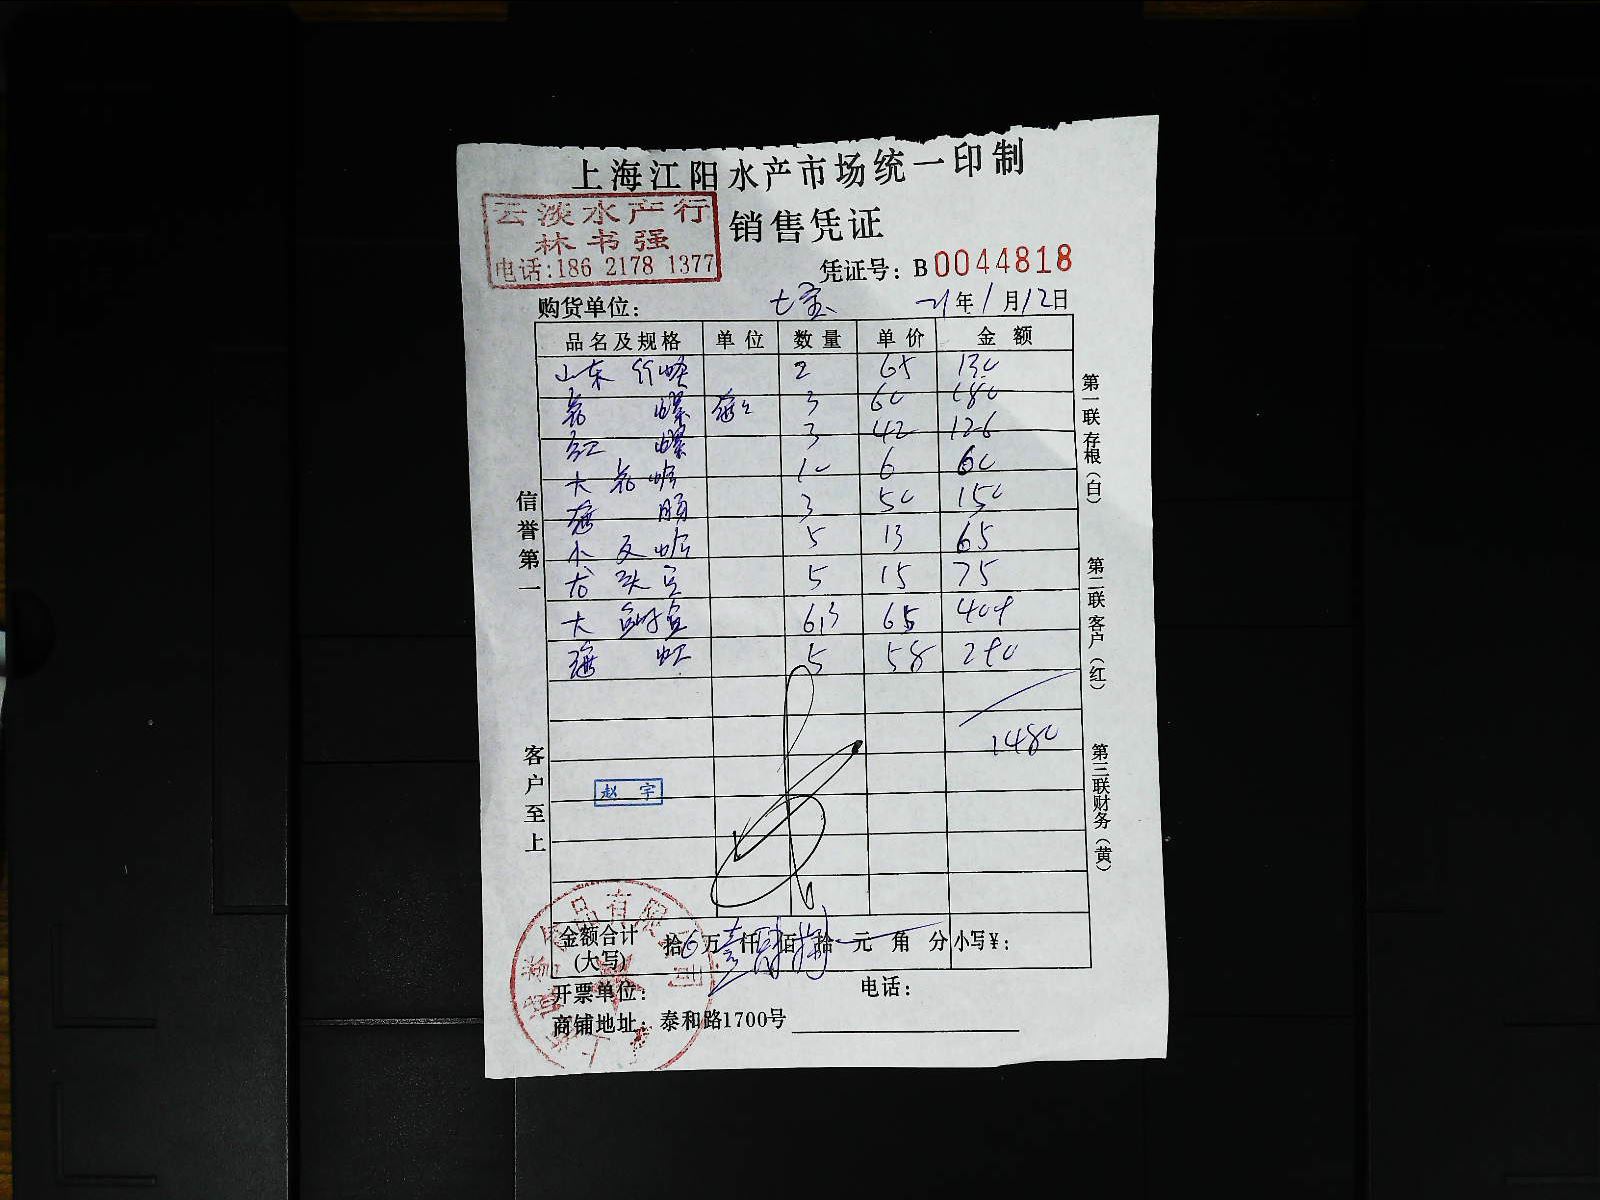 上海江阳水产市场统一印制
云淡水产行
林书强
电话:186 2178 1377
销售凭证
凭证号: B0044818
购货单位: 七宝 21年1月12日
品名及规格 单位 数量 单价 金额
山东竹蛏 2 65 130
花螺 3 60 180
红螺 3 42 126
大花蛤 10 6 60
海肠 3 50 150
小瓦蛤 5 13 65
龙头豆 5 15 75
大 6.3 65 409
海虹 5 58 290
1480
赵宇
信誉第一
客户至上
第一联 存根(白)
第二联 客户(红)
第三联 财务(黄)
金额合计(大写) 拾万壹仟肆佰捌拾元角分 小写¥:
品有限
开票单位: 电话:
商铺地址: 泰和路1700号